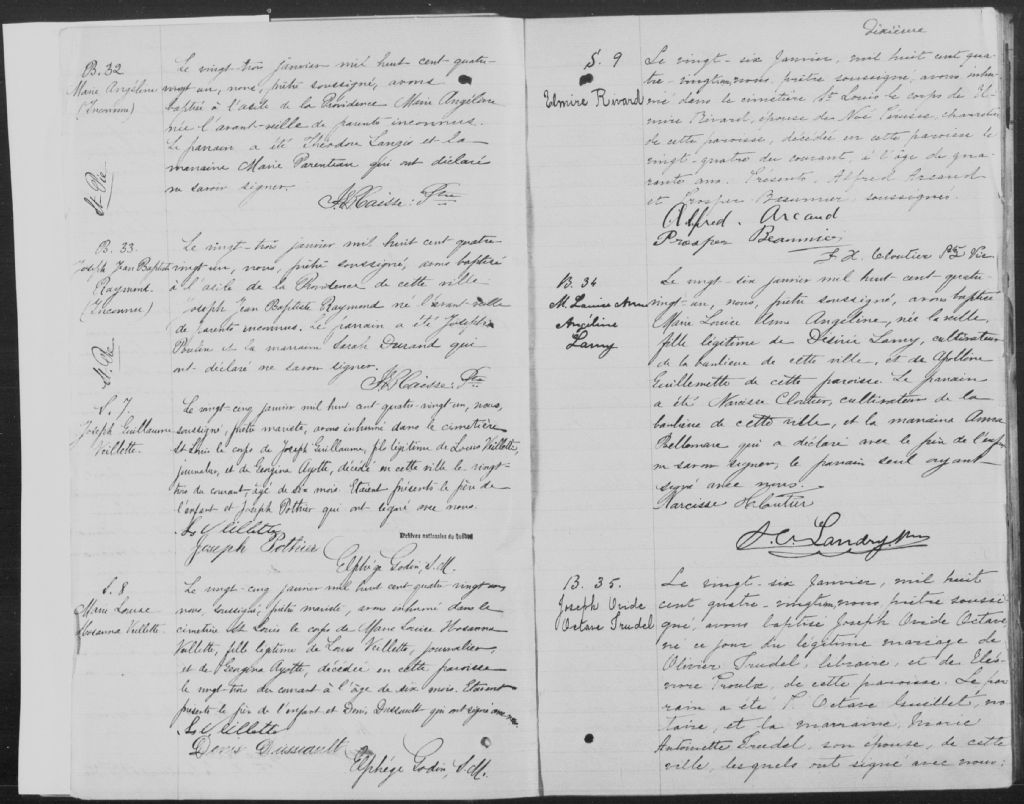 B. 32
Marie Angéline
(Inconnu)
St. Pie
Le vingt-trois janvier mil huit cent quatre-
vingt-un, nous, prêtre soussigné, avons
baptisé à l'asile de la Providence Marie Angéline
née l'avant-veille de parents inconnus.
Le parrain a été Théodore Langis et la
marraine Marie Parenteau qui ont déclaré
ne savoir signer.
Ptre
B. 33.
Joseph Jean Baptiste
Raymond.
(Inconnu)
St. Pie
Le vingt-trois janvier mil huit cent quatre-
vingt-un, nous, prêtre soussigné, avons baptisé
à l'asile de la Providence de cette ville
Joseph Jean Baptiste Raymond né l'avant-veille
de parents inconnus. Le parrain a été Joseph
Poulin et la marraine Sarah Durand qui
ont déclaré ne savoir signer.
Ptre
S. 7
Joseph Guillaume
Veillette.
Le vingt-cinq janvier mil huit cent quatre-vingt un, nous,
soussigné, prêtre mariste, avons inhumé dans le cimetière
St Louis le corps de Joseph Guillaume, fils légitime de Louis Veillette,
journalier, et de Georgina Ayotte, décédé en cette ville le vingt-
trois du courant, âgé de six mois. Etaient présents le père de
l'enfant et Joseph Pothier qui ont signé avec nous.
Ls Veillette
Joseph Pothier
Archives nationales du Québec
Elphège Godin, S.M.
S. 8
Marie Louise
Hosanna Veillette.
Le vingt-cinq janvier mil huit cent quatre vingt un
nous, soussigné, prêtre mariste, avons inhumé dans le
cimetière St Louis le corps de Marie Louise Hosanna
Veillette, fille légitime de Louis Veillette, journalier,
et de Georgina Ayotte, décédée en cette paroisse
le vingt-trois du courant à l'âge de six mois. Etaient
présents le père de l'enfant et Denis Dussault qui ont signé avec nous
Ls Veillette
Denis Dussault
Elphège Godin, S.M.
Dixième
S. 9
Elmire Rivard
Le vingt-six Janvier, mil huit cent qua-
tre-vingt-un, nous, prêtre soussigné, avons inhu-
mé dans le cimetière St Louis le corps de El-
mire Rivard, épouse de Noé charretier
de cette paroisse, décédée en cette paroisse le
vingt-quatre du courant, à l'âge de qua-
rante ans. Présents, Alfred Arcand
et Prosper Beaumier, soussignés.
Alfred. Arcand
Prosper Beaumier
F. X. Cloutier Ptre Vic.
B. 34
M. Louise Anna
Angéline
Lamy
Le vingt-six janvier mil huit cent quatre-
vingt-un, nous, prêtre soussigné, avons baptisé
Marie Louise Anna Angéline, née la veille,
fille légitime de Désiré Lamy, cultivateur
de la banlieue de cette ville, et de Apolline
Guillemette de cette paroisse. Le parrain
a été Narcisse Cloutier, cultivateur de la
banlieue de cette ville, et la marraine Anna
Bellemare qui a déclaré avec le père de l'enfant
ne savoir signer, le parrain seul ayant
signé avec nous.
Narcisse H Cloutier
Landry
B. 35.
Joseph Ovide
Octave Trudel
Le vingt-six Janvier, mil huit
cent quatre-vingt-un, nous, prêtre soussi-
gné, avons baptisé Joseph Ovide Octave
né ce jour du légitime mariage de
Olivier Trudel, libraire, et de Eléo-
nore Proulx, de cette paroisse. Le par-
rain a été Octave Guillet, no-
taire, et la marraine, Marie
Antoinette Trudel, son épouse, de cette
ville, lesquels ont signé avec nous: